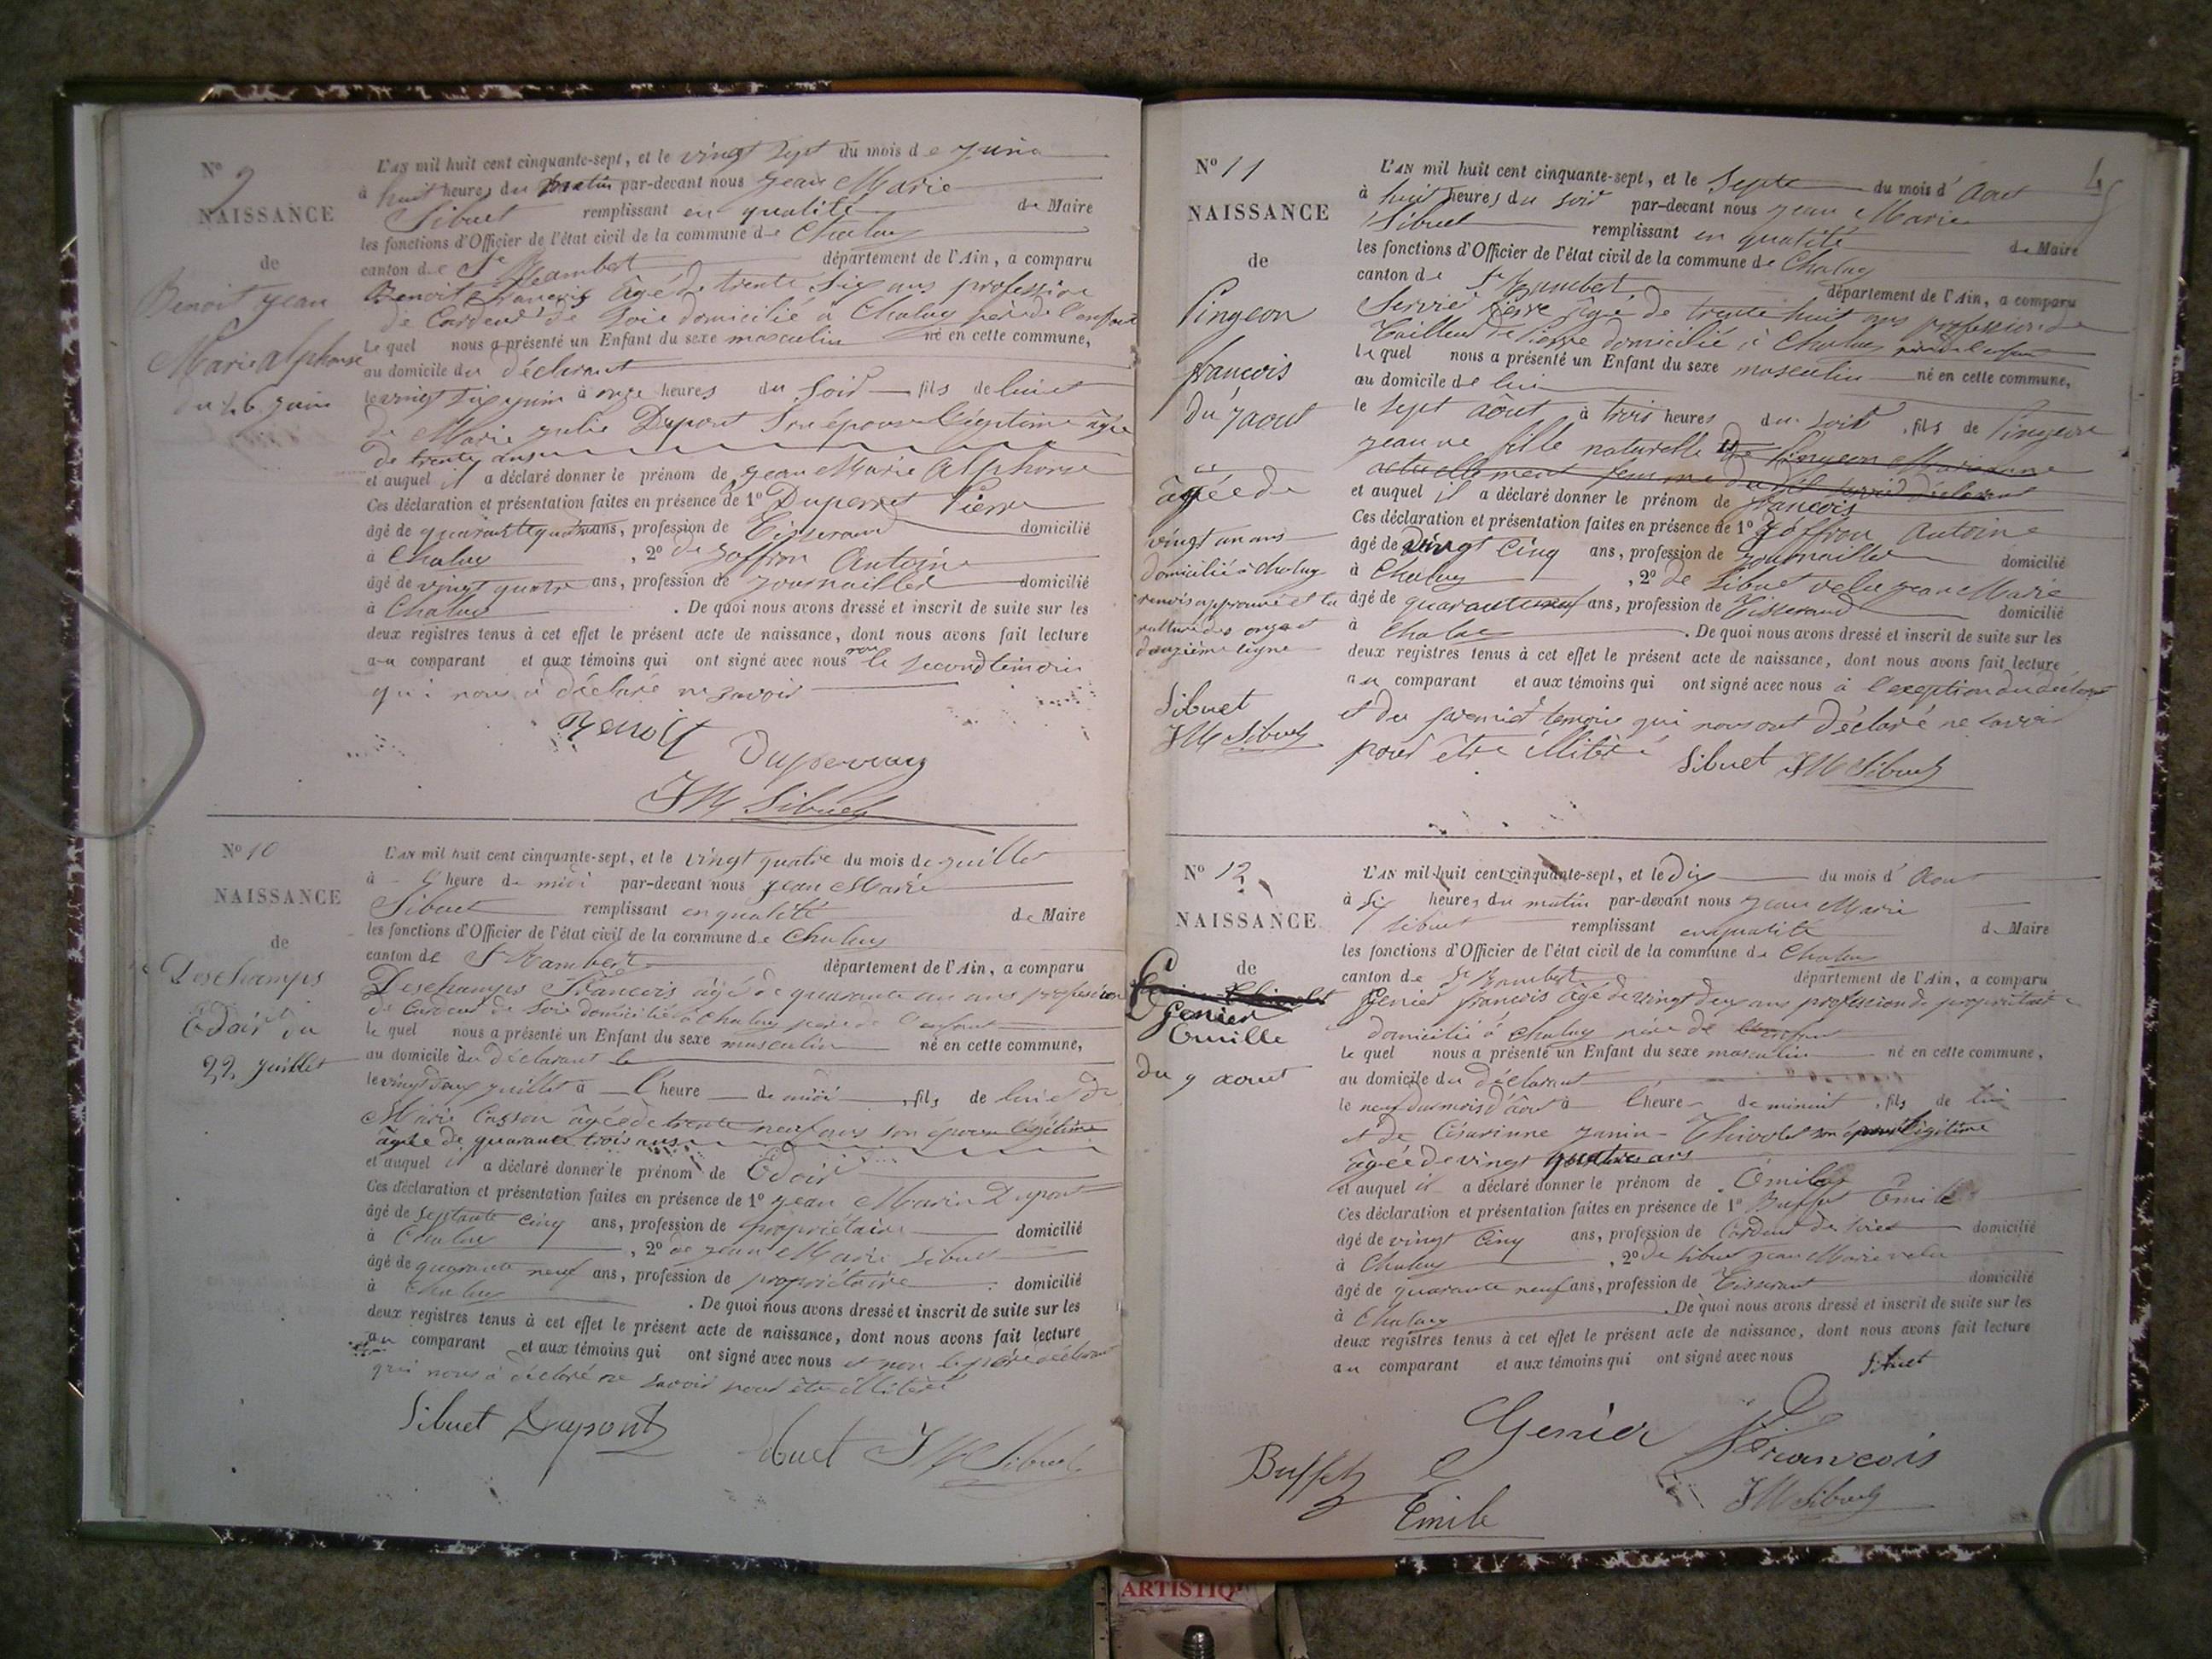 N° 9
NAISSANCE
de
Benoit Jean
Marie Alphonse
du 26 Juin
L'AN mil huit cent cinquante-sept, et le vingt sept du mois de Juin
à huit heures du matin par-devant nous Jean Marie
Sibuet remplissant en qualité de Maire
les fonctions d'Officier de l'état civil de la commune de Chaley
canton de St Rambert département de l'Ain, a comparu
Benoit François âgé de trente six ans profession
de Cardeur de Soie domicilié à Chaley père de l'enfant
Le quel nous a présenté un Enfant du sexe masculin né en cette commune,
au domicile du déclarant
le vingt six juin à onze heures du soir fils de lui et
de Marie Julie Dupont son épouse légitime âgée
de trente ans
et auquel il a déclaré donner le prénom de Jean Marie Alphonse
Ces déclaration et présentation faites en présence de 1° Duperret Pierre
âgé de quarante quatre ans, profession de Tisserand domicilié
à Chaley , 2° de Joffron Antoine
âgé de vingt quatre ans, profession de journaillier domicilié
à Chaley . De quoi nous avons dressé et inscrit de suite sur les
deux registres tenus à cet effet le présent acte de naissance, dont nous avons fait lecture
au comparant et aux témoins qui ont signé avec nous non le second témoin
qui nous a déclaré ne savoir
Benoit
JM Sibuet
N° 10
NAISSANCE
de
Deschamps
Edoir du
22 juillet
L'AN mil huit cent cinquante-sept, et le vingt quatre du mois de juillet
à l' heure de midi par-devant nous Jean Marie
Sibuet remplissant en qualité de Maire
les fonctions d'Officier de l'état civil de la commune de Chaley
canton de St Rambert département de l'Ain, a comparu
Deschamps François âgé de quarante un ans profession
de Cardeur de Soie domicilié à Chaley père de l'enfant
le quel nous a présenté un Enfant du sexe masculin né en cette commune,
au domicile du déclarant le
le vingt deux juillet à l'heure de midi , fils de lui et de
Marie Casson âgée de trente neuf ans son épouse légitime
âgée de quarante trois ans
et auquel il a déclaré donner le prénom de Edoir
Ces déclaration et présentation faites en présence de 1° Jean Marie Dupont
âgé de septante cinq ans, profession de propriétaire domicilié
à Chaley , 2° de Jean Marie Sibuet
âgé de quarante neuf ans, profession de propriétaire domicilié
à Chaley . De quoi nous avons dressé et inscrit de suite sur les
deux registres tenus à cet effet le présent acte de naissance, dont nous avons fait lecture
au comparant et aux témoins qui ont signé avec nous et non le père déclarant
qui nous a déclaré ne savoir pour être illitéré
Sibuet Dupont
Sibuet JM Sibuet
45
N° 11
NAISSANCE
de
Pingeon
françois
du 7 aout
âgée de
vingt un ans
domicilié à Chaley
renvois approuvé et la
rature des onze et
douzième ligne
Sibuet
JM Sibuet
L'AN mil huit cent cinquante-sept, et le Septe du mois d' Aout
à huit heures du soir par-devant nous Jean Marie
Sibuet remplissant en qualité de Maire
les fonctions d'Officier de l'état civil de la commune de Chaley
canton de St Rambert département de l'Ain, a comparu
Servié Pierre âgé de trente huit ans profession de
Tailleur de Pierre domicilié à Chaley père de l'enfant
le quel nous a présenté un Enfant du sexe masculin né en cette commune,
au domicile de lui
le sept août à trois heures du soir , fils de Pingeon
jeanne fille naturelle de Pingeon Marianne
actuellement femme du dit Servié déclarant
et auquel il a déclaré donner le prénom de françois
Ces déclaration et présentation faites en présence de 1° Joffron Antoine
âgé de vingt cinq ans, profession de journaillier domicilié
à Chaley , 2° de Sibuet velu Jean Marie
âgé de quarante neuf ans, profession de Tisserand domicilié
à Chaley . De quoi nous avons dressé et inscrit de suite sur les
deux registres tenus à cet effet le présent acte de naissance, dont nous avons fait lecture
au comparant et aux témoins qui ont signé avec nous à l'exeption du déclarant
et du premier temoin qui nous ont déclaré ne savoir
pour être illitéré Sibuet JM Sibuet
N° 12
NAISSANCE
de
Genier
Emille
du 9 aout
L'AN mil huit cent cinquante-sept, et le dix du mois d' Aout
à Six heures du matin par-devant nous Jean Marie
Sibuet remplissant en qualité de Maire
les fonctions d'Officier de l'état civil de la commune de Chaley
canton de St Rambert département de l'Ain, a comparu
Genier françois âgé de vingt deux ans profession de propriétaire
domicilié à Chaley père de l'enfant
Le quel nous a présenté un Enfant du sexe masculin né en cette commune,
au domicile du déclarant
le neuf du mois d'août à l'heure de minuit , fils de lui
et de Césarinne Janin-Thivolet son épouse légitime
âgée de vingt quatre ans
et auquel il a déclaré donner le prénom de Emile
Ces déclaration et présentation faites en présence de 1° Buffet Emile
âgé de vingt cinq ans, profession de Cardeur de soies domicilié
à Chaley , 2° de Sibuet Jean Marie velu
âgé de quarante neuf ans, profession de Tisserant domicilié
à Chaley . De quoi nous avons dressé et inscrit de suite sur les
deux registres tenus à cet effet le présent acte de naissance, dont nous avons fait lecture
au comparant et aux témoins qui ont signé avec nous Sibuet
Genier François
Buffet Emile
JM Sibuet
ARTISTIQ